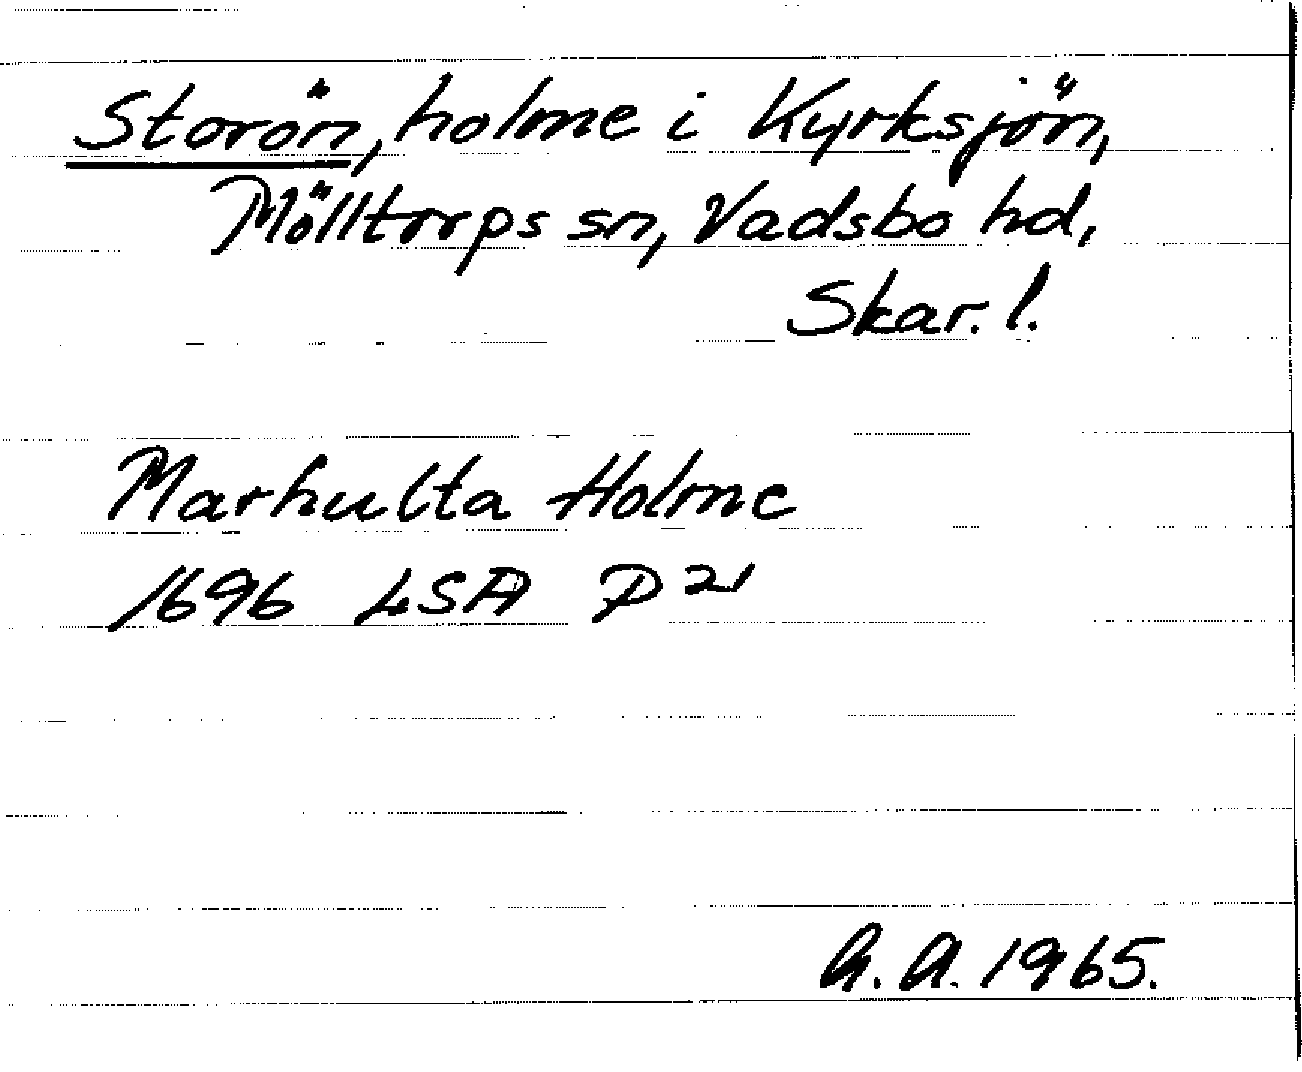 Storön, holme i Kyrksjön,
Mölltorps sn, Vadsbo hd,
Skar. l.
Marhulta Holme
1696 LSA P 21
G. A. 1965.